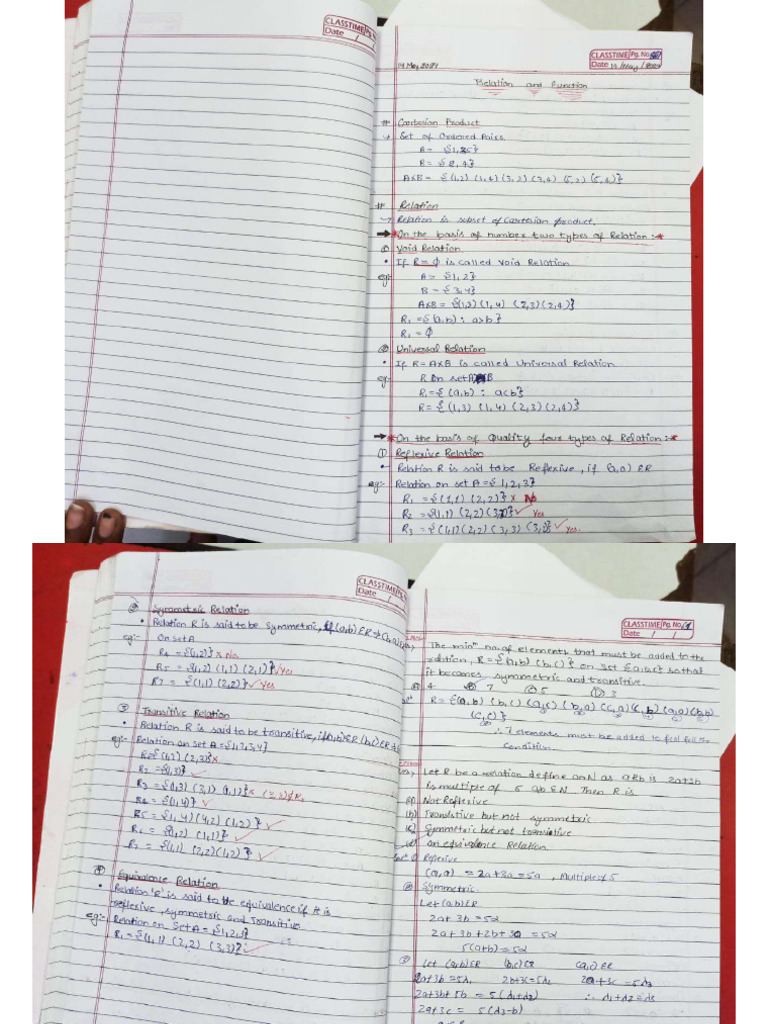 CLASSTIME Pg. No.
Date / /
CLASSTIME Pg. No.
Date 14/May/2024
14 May 2024
Relation and Function
# Cartesian Product
Set of Ordered Pairs.
A = {1,3,5}
B = {2,4}
A×B = {(1,2) (1,4) (3,2) (3,4) (5,2) (5,4)}
# Relation
Relation is subset of Cartesian product.
* On the basis of number two types of Relation :- *
① Void Relation
• If R = Φ is called Void Relation
eg:- A = {1,2}
B = {3,4}
A×B = {(1,2) (1,4) (2,3) (2,4)}
R₁ = {(a,b) : a>b}
R₁ = Φ
② Universal Relation
• If R = A×B is called Universal Relation
eg:- R on set A B
R₁ = {(a,b) : a<b}
R = {(1,3) (1,4) (2,3) (2,4)}
* On the basis of Quality four types of Relation :- *
① Reflexive Relation
• Relation R is said to be Reflexive, if (a,a) ∈R
eg:- Relation on set A = {1,2,3}
R₁ = {(1,1) (2,2)} × No
R₂ = {(1,1) (2,2) (3,3)} ✓ Yes
R₃ = {(1,1) (2,2) (3,3) (3,2)} ✓ Yes.
CLASSTIME Pg.
Date /
② Symmetric Relation
• Relation R is said to be Symmetric, if (a,b) ∈R ⇒ (b,a)
eg:- On set A
R₄ = {(1,2)} × No
R₅ = {(1,2) (1,1) (2,1)} ✓ Yes
R₇ = {(1,1) (2,2)} ✓ Yes
③ Transitive Relation
• Relation R is said to be transitive, if (a,b)∈R (b,c)∈R
eg:- Relation on set A = {1,2,3,4}
R = {(1,2) (2,3)} ×
R₂ = {(1,3)} ✓
R₃ = {(1,3) (3,1) (1,1)} × (3,3)∉R
R₄ = {(1,4)} ✓
R₅ = {(1,4) (4,2) (1,2)} ✓
R₆ = {(1,2) (1,1)} ✓
R₇ = {(1,1) (2,2) (1,2)} ✓
④ Equivalence Relation
• Relation 'R' is said to the equivalence if it is
reflexive, symmetric and Transitive
eg:- Relation on Set A = {1,2,3}
R₁ = {(1,1) (2,2) (3,3)} ✓
CLASSTIME Pg. No.
Date / /
The minᵐ no. of elements that must be added to the
relation, R = {(a,b) (b,c)} on set {a,b,c} so that
it becomes symmetric and transitive.
(A) 4 (B) 7 (C) 5 (D) 3
R = {(a,b) (b,c) (a,c) (b,a) (c,a) (c,b) (a,a) (b,b)
(c,c)}
∴ 7 elements must be added to
condition.
Let R be a relation define on N as aRb is 2a+3b
is multiple of 5 a,b∈N. Then R is
(a) Not Reflexive
(b) Transitive but not symmetric
(c) Symmetric but not transitive
(d) an equivalence Relation.
① Reflexive
(a,a) = 2a+3a = 5a, Multiple of 5
② Symmetric.
Let (a,b)∈R
2a+3b = 5α
2a+3b+2b+3a = 5α
5(a+b) = 5α
③ Let (a,b)∈R (b,c)∈R (a,c)∈R
2a+3b = 5d₁ 2b+3c = 5d₂ 2a+3c = 5d₃
2a+3b+5b = 5(d₁+d₂) ∴ d₁+d₂ = d₃
2a+3c = 5(d₃-b)